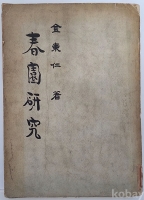 金東仁 著
春園研究
kobay